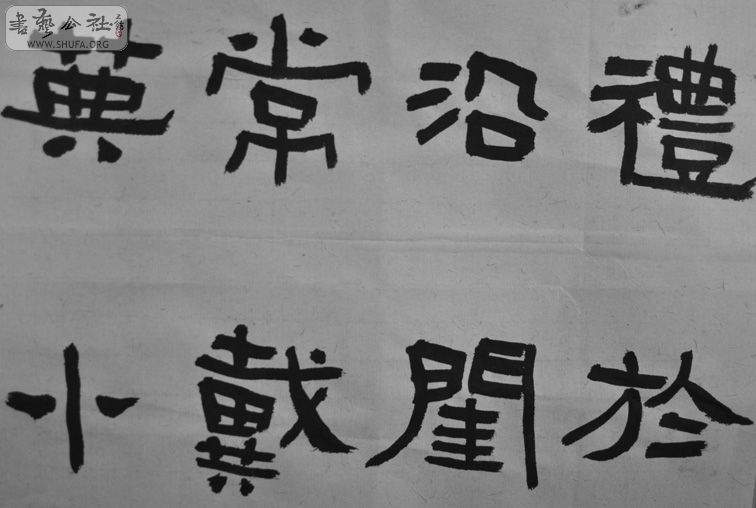 書藝公社
WWW.SHUFA.ORG
禮於
沿閨
常戴
典小